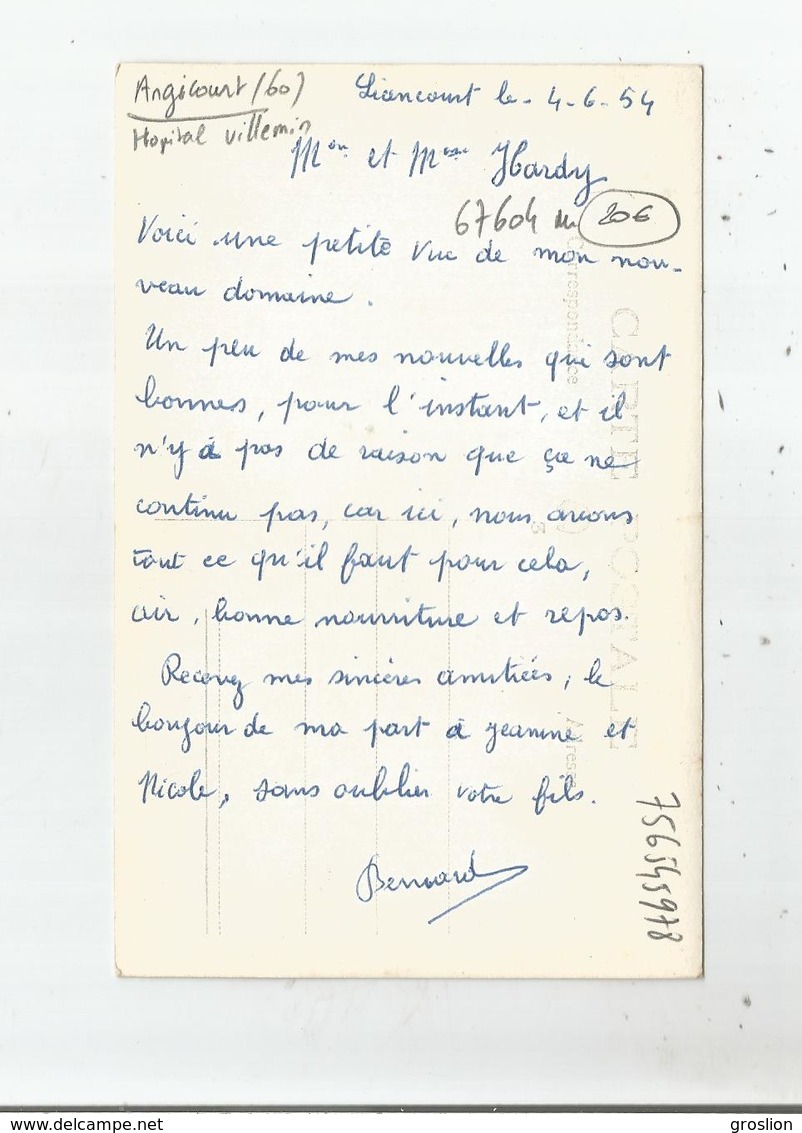 Angicourt (60)
Hopital Villemin
Liancourt le - 4-6-54
Mon et Mme Hardy
67604 20€
Voici une petite vue de mon nou-
veau domaine.
Un peu de mes nouvelles qui sont
bonnes, pour l'instant, et il
n'y à pas de raison que ça ne
continu pas, car ici, nous avons
tout ce qu'il faut pour cela,
air, bonne nourriture et repos.
Recevez mes sincères amitiées, le
bonjour de ma part à Jeannine et
Nicole, sans oublier votre fils.
Bernard
CARTE POSTALE
Correspondance
Adresse
756545978
www.delcampe.net
groslion